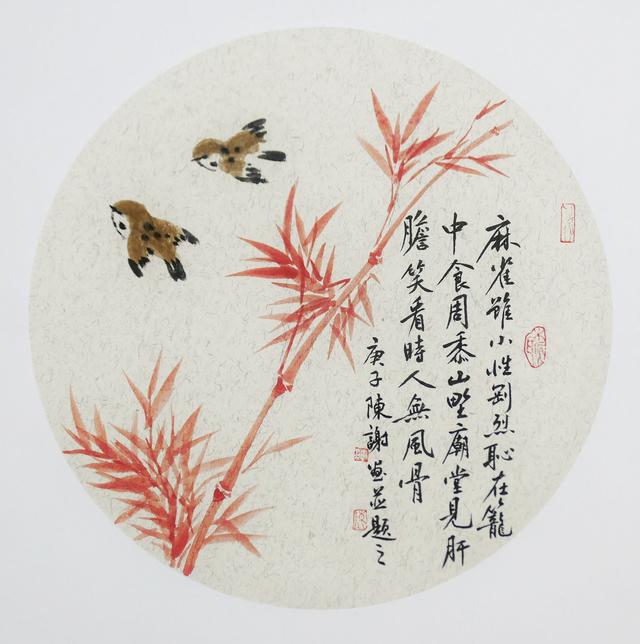 麻雀雖小性剛烈恥在籠
中食周黍山野廟堂見肝
膽笑看時人無風骨
庚子陳謝畫並題之